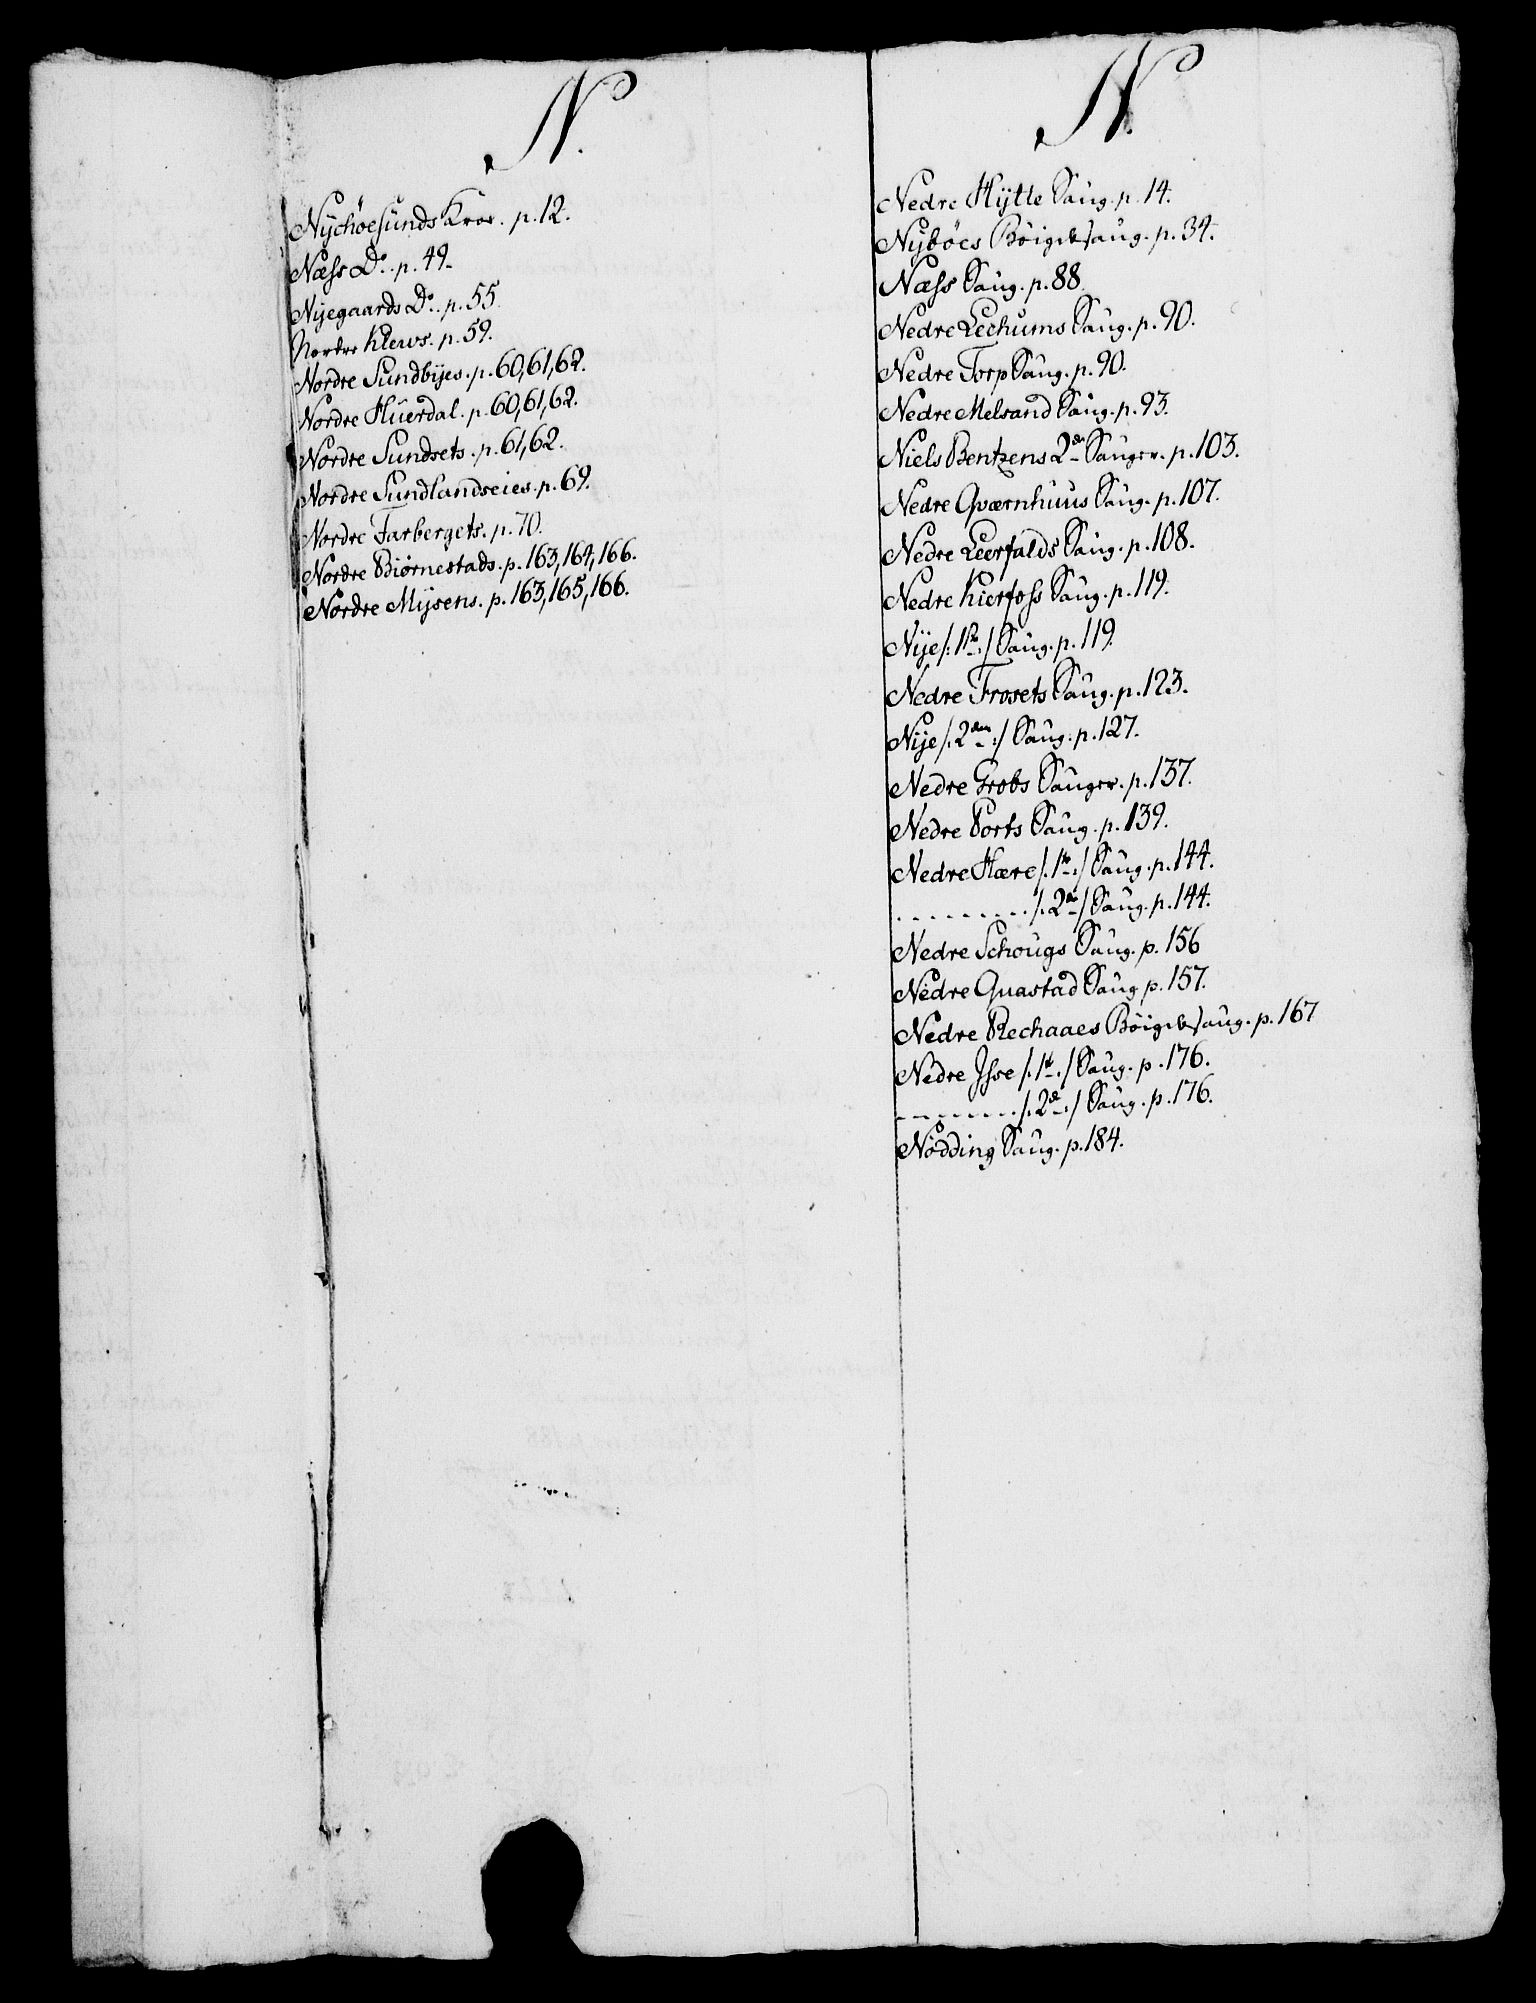 N.
Nÿchöesunds Kroe. p.12.
Næss Do. p.49.
Nÿegaards Do. p.55.
Nordre Klews. p.59.
Nordre Sundbÿes. p.60,61,62.
Nordre Huerdal. p.60,61,62.
Nordre Sundsets. p.61,62.
Nordre Sundlandseies. p.69.
Nordre Farbergets. p.70.
Nordre Biørnestads. p.163,164,166.
Nordre Mÿsens. p.163,165,166.
N.
Nedre Hÿtte Saug. p.14.
Nÿböes Böigdesaug. p.34.
Næss Saug. p.88.
Nedre Lechums Saug. p.90.
Nedre Torp Saug. p.90.
Nedre Melsand Saug. p.93.
Niels Bentzens 2de Sauger. p.103.
Nedre Qværnhuus Saug. p.107.
Nedre Leerfalds Saug. p.108.
Nedre Kierfoss Saug. p.119.
Nÿe /:1ste:/ Saug. p.119.
Nedre Frosets Saug. p.123.
Nÿe /:2den:/ Saug. p.127.
Nedre Grobs Sauger. p.137.
Nedre Ports Saug. p.139.
Nedre Hære /:1te:/ Saug. p.144.
.......... /:2de:/ Saug. p.144.
Nedre Schougs Saug. p.156
Nedre Quastad Saug p.157.
Nedre Rechaaes Böigdesaug. p.167
Nedre Isse /:1te:/ Saug. p.176.
.......... /:2de:/ Saug. p.176.
Nödding Saug. p.184.